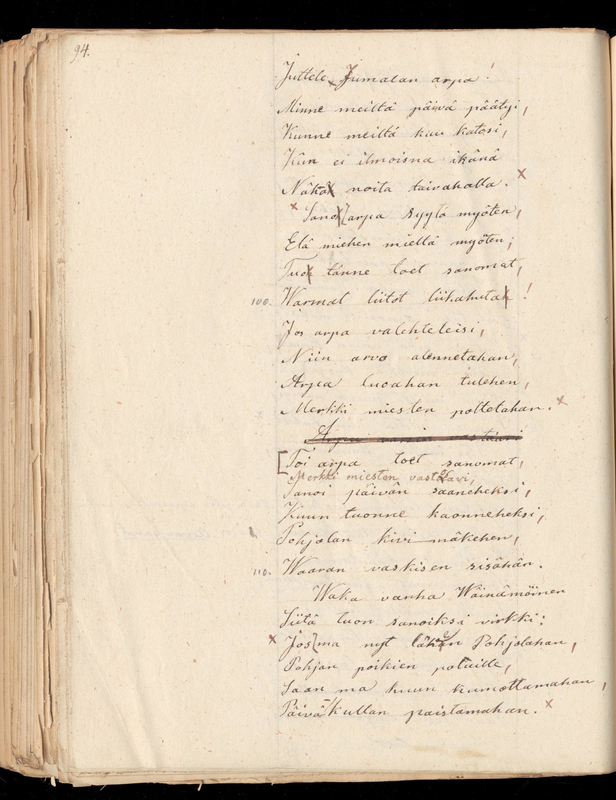 94.
Juttele Jumalan arpa!
Minne meiltä päivä päätyi,
Kunne meiltä kuu katosi,
Kun ei ilmoisna ikänä
Näkök noita taivahalla.
Sanok arpa syytä myöten,
Elä miehen mieltä myöten;
Tuok tänne toet sanomat,
100. Warmat liitot liikahutak!
Jos arpa valehteleisi,
Niin arvo alennetahan,
Arpa luoahan tulehen,
Merkki miesten poltetahan.
Arpa varsin vastäävi
Toi arpa toet sanomat,
Merkki miesten vastoavi,
Sanoi päivän saaneheksi,
Kuun tuonne kaonneheksi,
Pohjolan kivi mäkehen,
110. Waaran vaskisen sisähän.
Waka vanha Wäinämöinen
Siitä tuon sanoiksi virkki:
Jos ma nyt lähen Pohjolahan,
Pohjan poikien poluille,
Saan ma kuun kumottamahan,
Päivä kullan paistamahan.